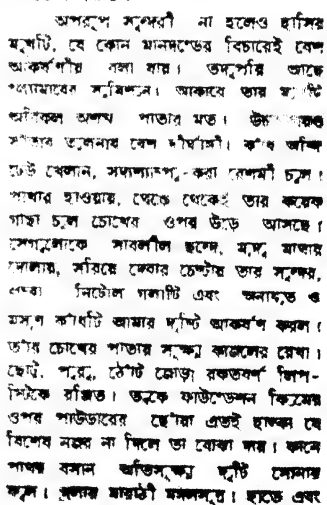 অপরূপ সুন্দরী না হলেও হাসির
মুখটি, যে কোন মানদণ্ডের বিচারেই বেশ
আকর্ষণীয় বলা যায়। তদুপরি আছে
গ্ল্যামারের সুমিশ্রন। আকারে তার
অবিকল অশথ পাতার মত।
তুলনায় বেশ দীর্ঘাঙ্গী। কাঁধ অব্দি
ঢেউ খেলান, সদ্যশ্যাম্পু-করা রেশমী চুল।
পাখার হাওয়ায়, থেকে থেকেই তার কয়েক
গাছা চুল চোখের ওপর উড়ে আসছে।
সেগুলোকে সাবলীল ছন্দে, মৃদু মাথার
দোলায়, সরিয়ে দেবার চেষ্টায় তার সুন্দর,
লম্বা নিটোল গলাটি এবং অনাবৃত ও
মসৃণ কাঁধটি আমার দৃষ্টি আকর্ষণ করল।
তার চোখের পাতার সূক্ষ্ম কাজলের রেখা।
ছোট্ট, পুরু, ঠোঁট জোড়া রক্তবর্ণ লিপ-
স্টিকে রঞ্জিত। ত্বকে ফাউণ্ডেশন ক্রিমের
ওপর পাউডারের ছোঁয়া এতই হাল্কা যে
বিশেষ নজর না দিলে তা বোঝা দায়। কানে
পাথর বসান অতিসূক্ষ্ম দুটি সোনার
ফুল। গলায় মারাঠী মঙ্গলসূত্র। হাতে এবং